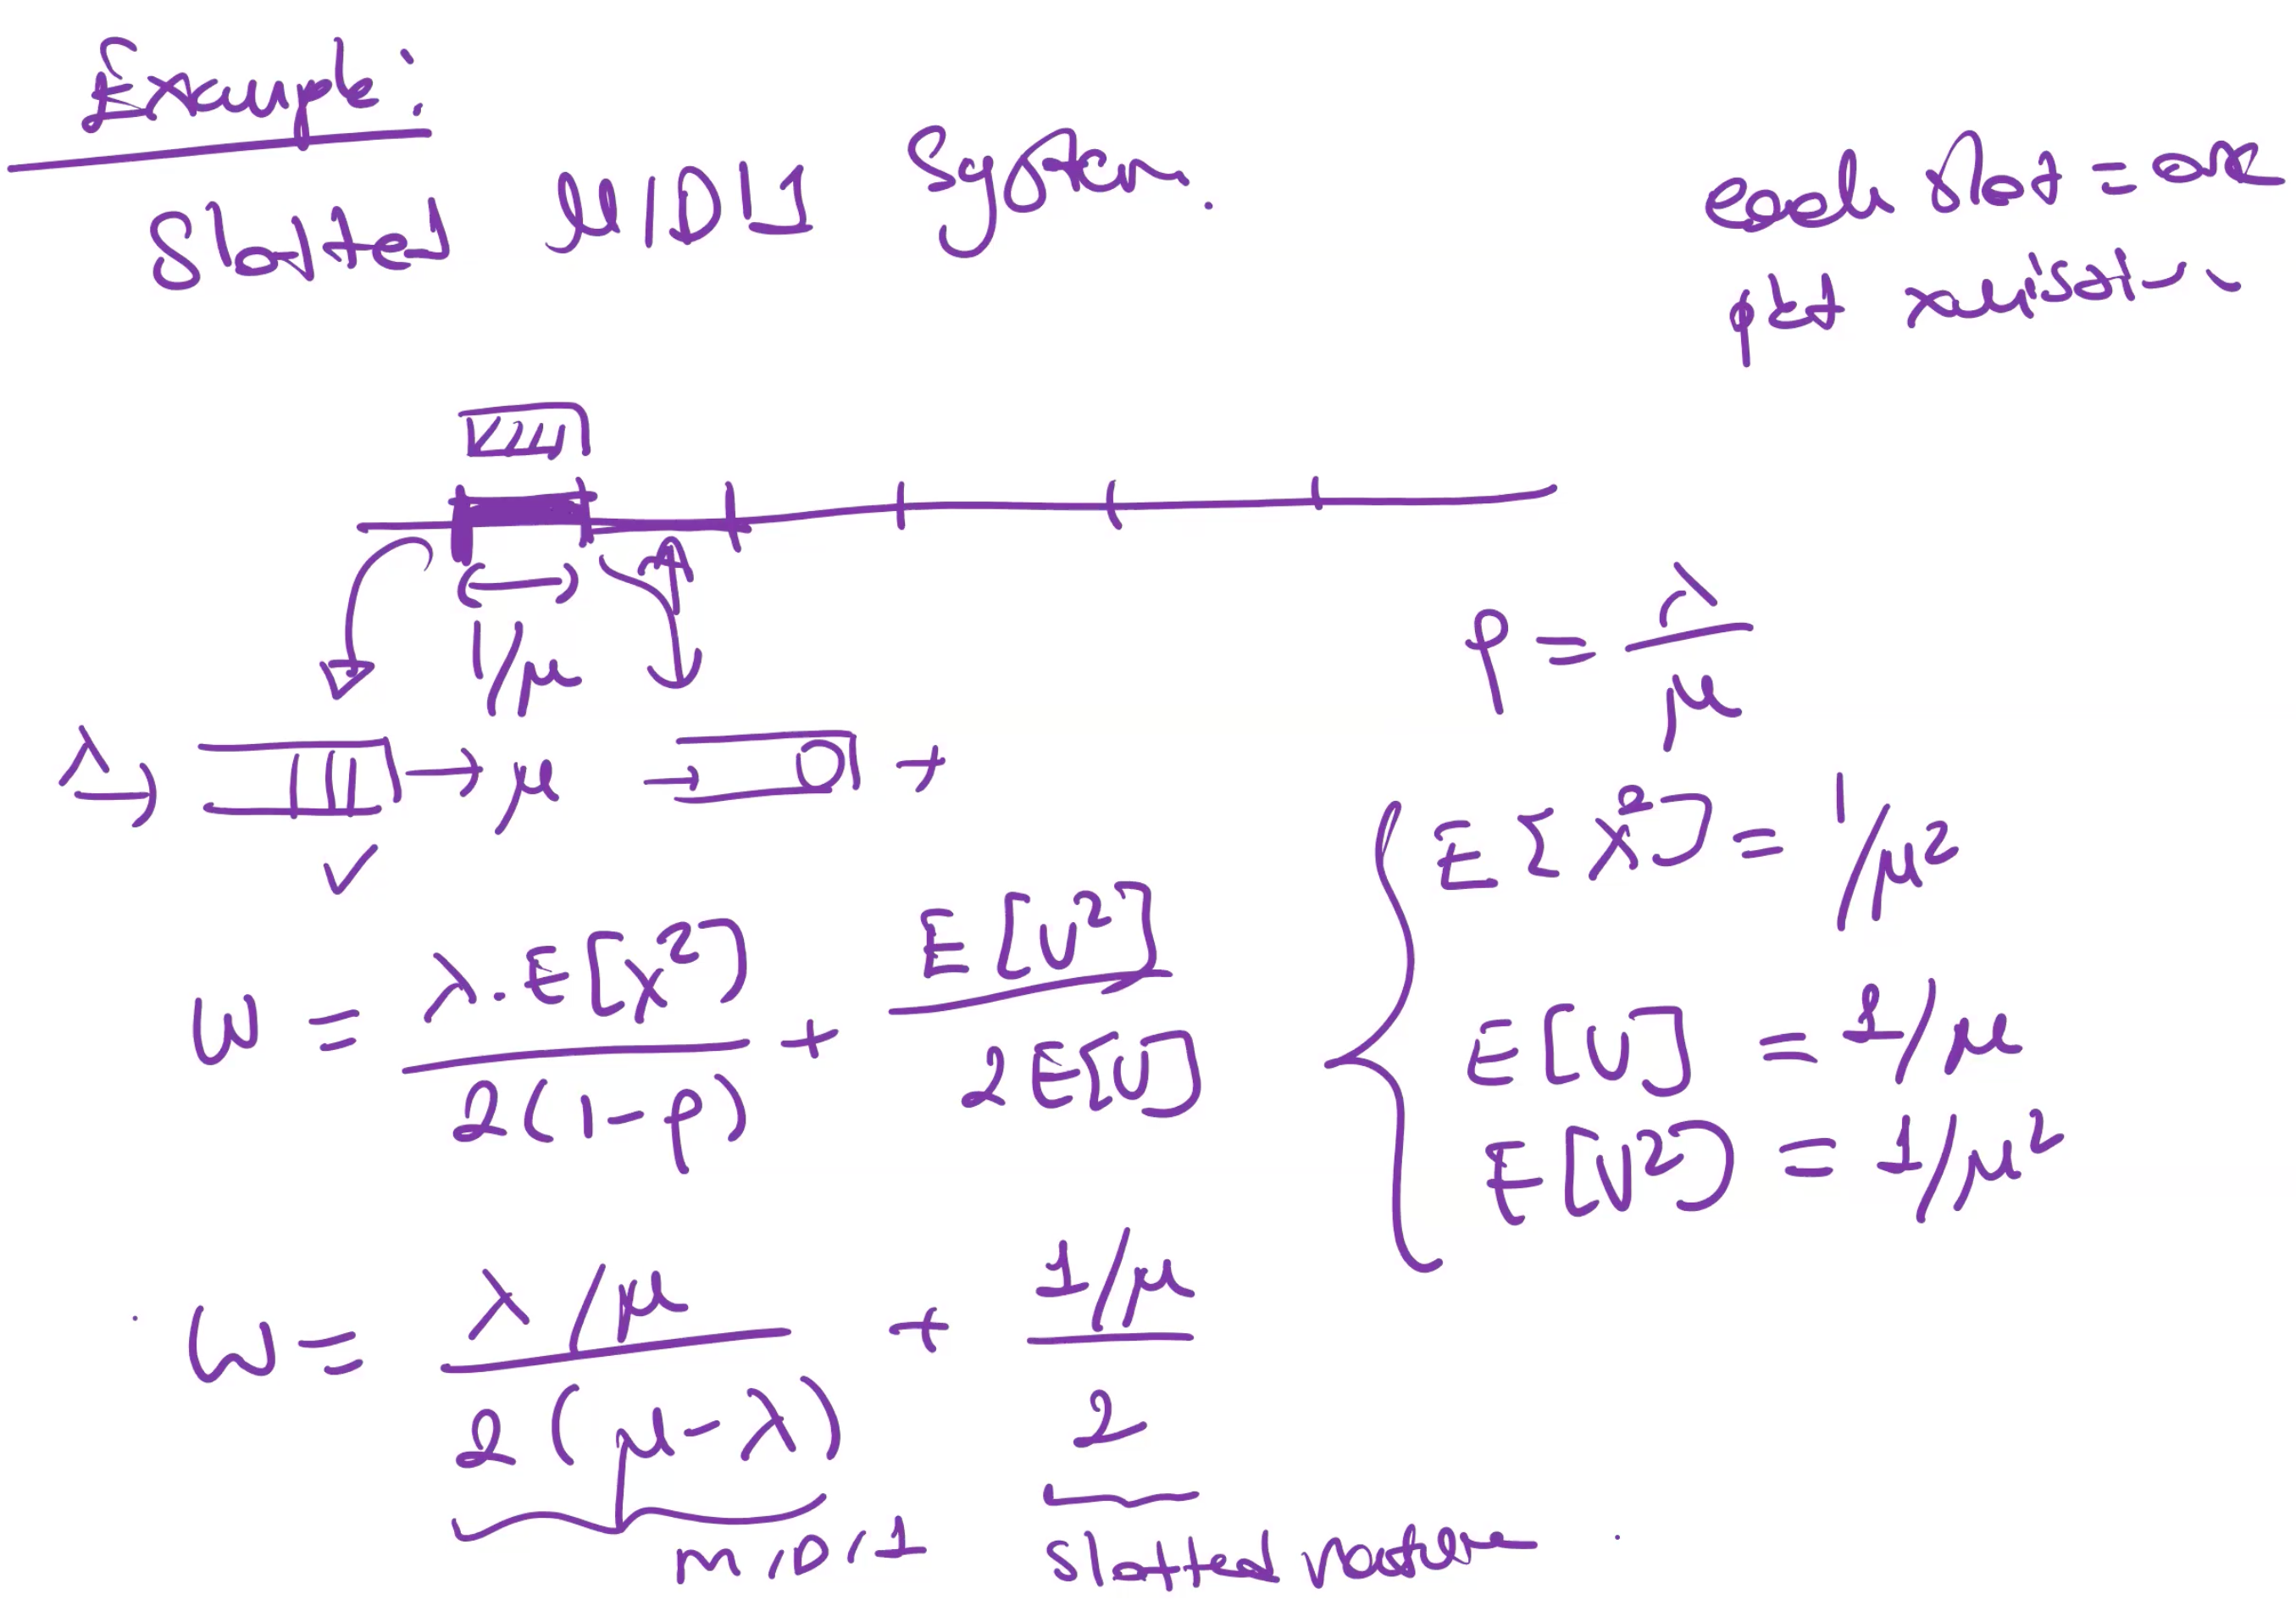 Example:
Slotted M/D/1 System.
each slot = one
pkt xmission
1/μ
ρ = λ/μ
λ → μ
E[X²] = 1/μ²
W = λ·E[X²] / 2(1-ρ) + E[V²] / 2E[V]
E[V] = 1/μ
E[V²] = 1/μ²
W = λ/μ / 2(μ-λ) + 1/μ / 2
M/D/1 slotted nature